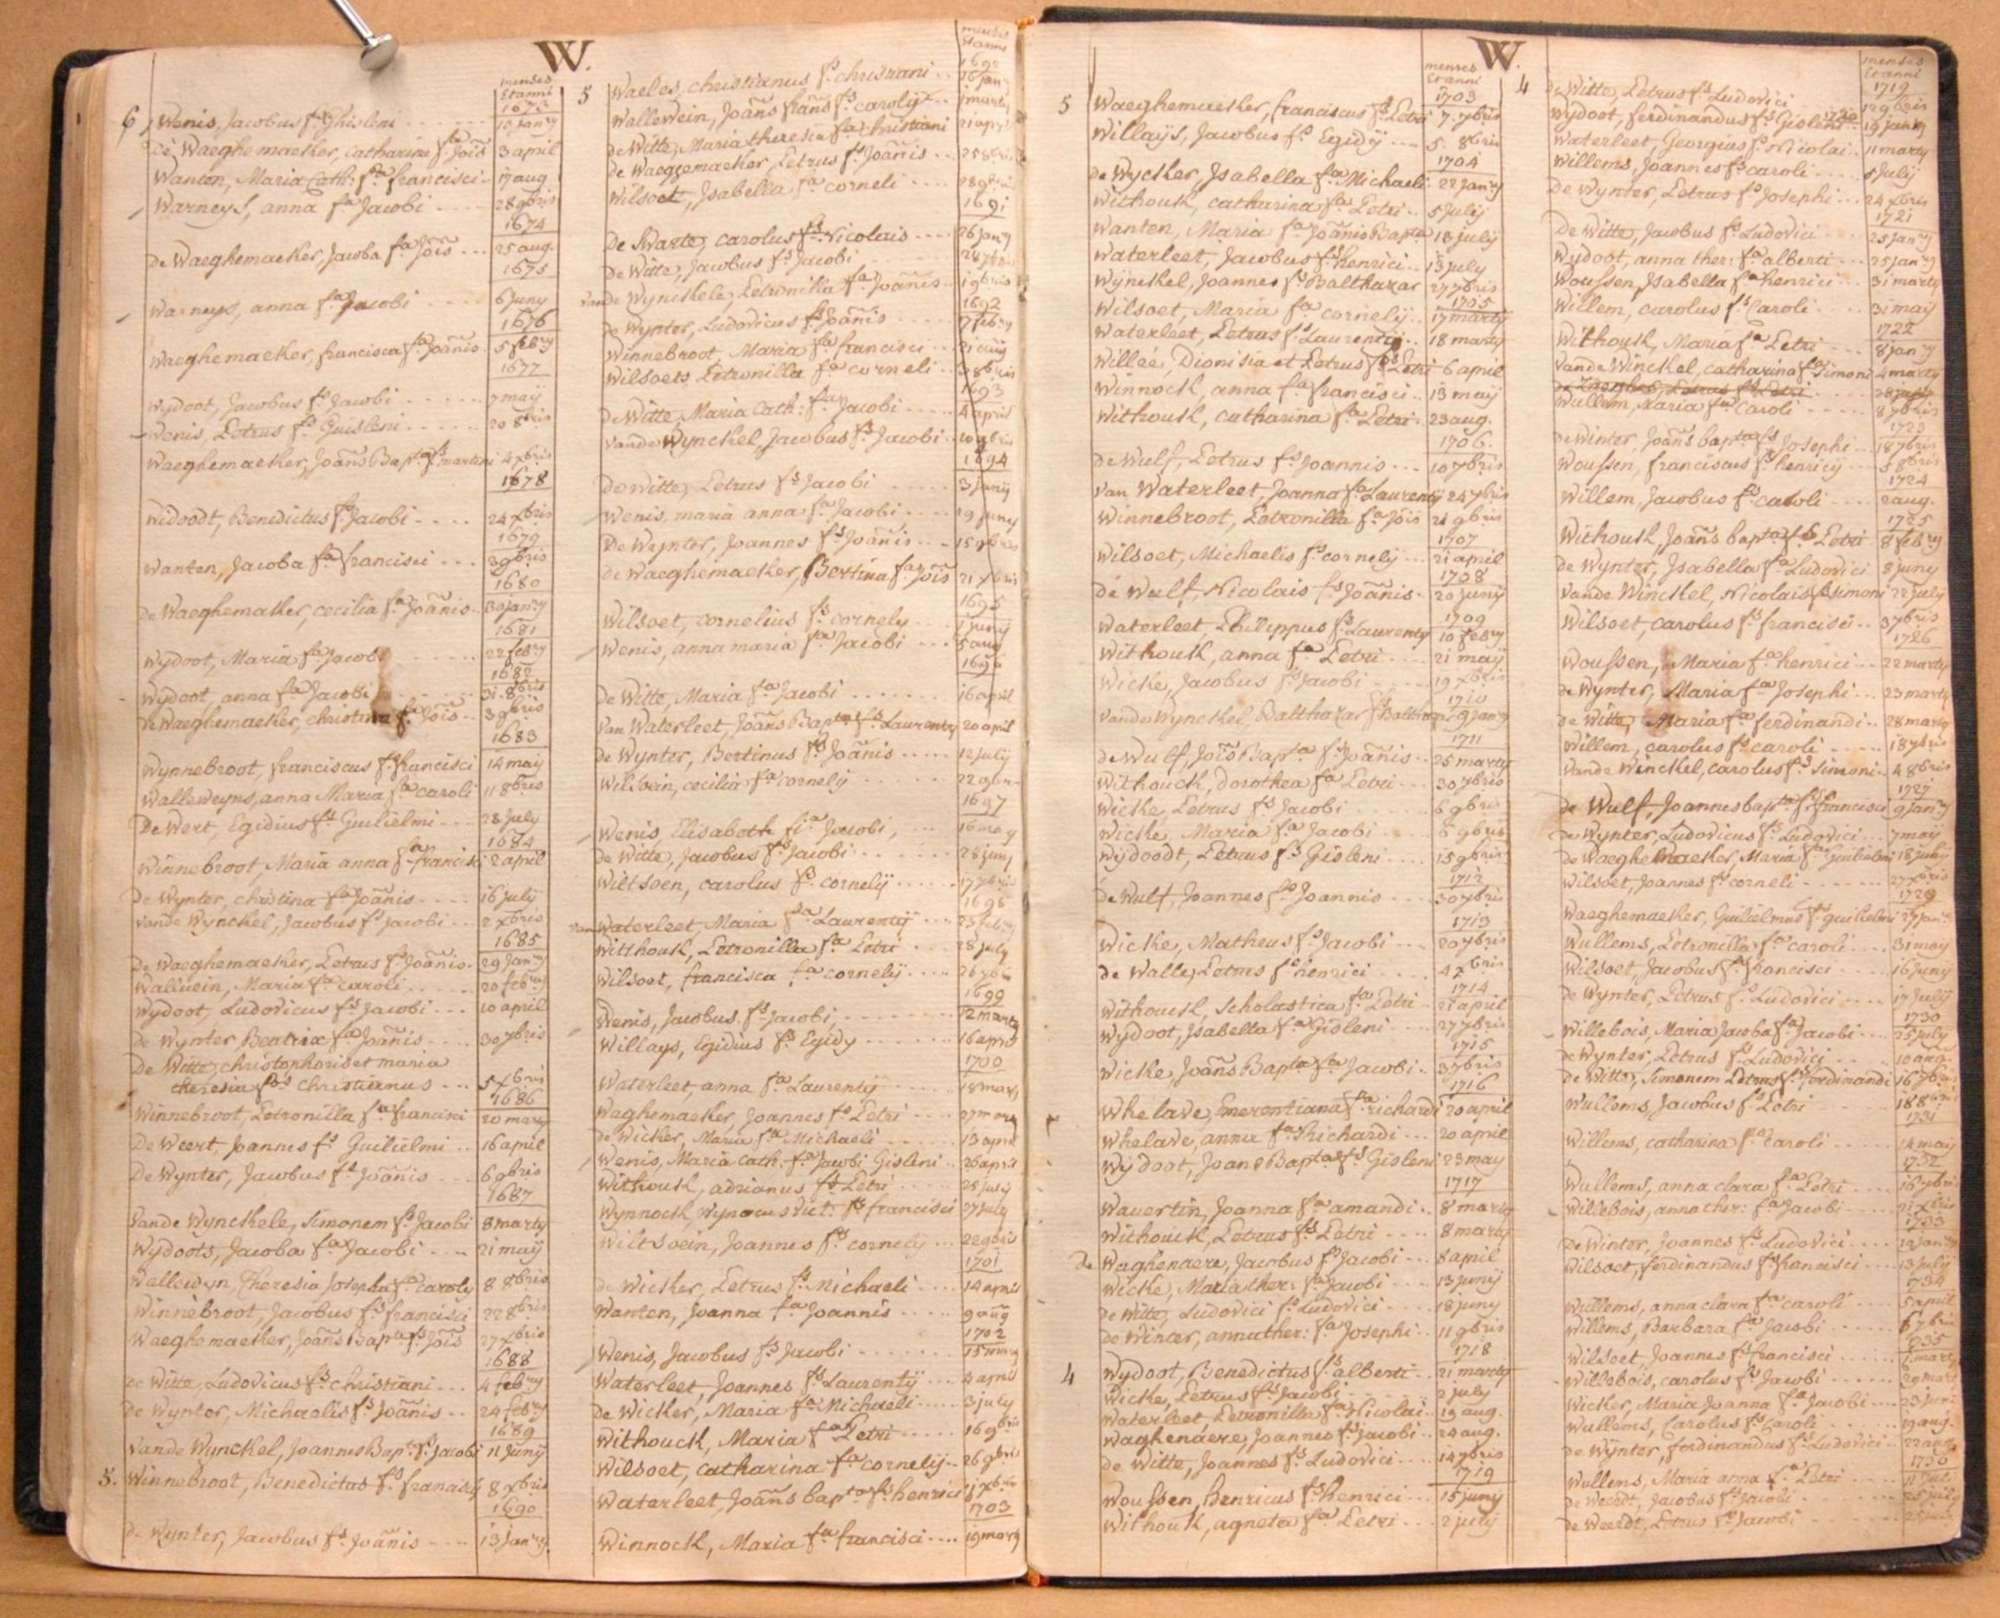 W.
menses
Et anni
1673
6 Wenis, Jacobus fs Ghisleni 10 Janry
de Waeghemaeker, catharina fa Jois 3 april
Wanten, Maria Cath: fa francisci 17 aug
Warneys, anna fa Jacobi 28 9bris
1674
de Waeghemaeker, Jacoba fa Jois 25 aug.
1675
Warneys, anna fa Jacobi 6 Juny
1676
Waeghemaeker, francisca fa Joañis 5 febry
1677
wydoot, Jacobus fs Jacobi 7 maÿ
Wenis, Petrus fs Guisleni 20 8bris
Waeghemaeker, Joañs Bapta fs martini 4 xbris
1678
widoodt, Benedictus fs Jacobi 24 xbris
1679
Wanten, Jacoba fa francisci 3 9bris
1680
de Waeghemaker, cecilia fa Joañis 30 janry
1681
Wydoot, Maria fa Jacobi 22 febry
1682
Wydoot anna fa Jacobi 31 8bris
de Waeghemaeker, christina fa Jois 3 9bris
1683
Wynnebroot, franciscus fs francisci 14 maÿ
Walleweyns, anna Maria fa caroli 11 8bris
De Wert, Egidius fs Guilielmi 28 July
1684
Winnebroot, Maria anna fa francisci 2 april
De Wynter, christina fa Joañis 16 july
Vande Wynckel, Jacobus fs Jacobi 2 xbris
1685
De Waeghemaeker, Petrus fs Joañis 29 Janry
Walluein, Maria fa caroli 20 febry
Wydoot, Ludovicus fs Jacobi 10 april
De Wynter Beatrix fa Joañis 30 7bris
De Witte, christophorus et maria
theresia christianus 5 xbris
1686
Winnebroot, Petronilla fa francisci 20 marty
De Weert, Joannes fs Guilielmi 16 april
De Wynter, Jacobus fs Joañis 6 9bris
1687
Vande Wynckele, Simonem fs Jacobi 8 marty
Wydoots, Jacoba fa Jacobi 21 maÿ
Wallewyn, Theresia Josepha fa caroly 8 8bris
Winnebroot, Jacobus fs francisci 22 8bris
Waeghemaeker, Joañs Bapta fs Jois 27 xbris
1688
de Witte, Ludovicus fs christiani 4 febry
de Wynter, Michaelis fs Joañis 24 febry
1689
Vande Wynckel, Joannes Bapt fs Jacobi 11 Juny
5. Winnebroot, Benedictus fs francisci 8 xbris
1690
de Wynter, Jacobus fs Joañis 13 Janry
menses
Et anni
1690
5 Waeles, christianus fs christiani 16 jan
Wallewein, Joañs frañs fs caroly marty
de Witte, Maria theresia fa christiani 21 april
de Waegemaeker, Petrus fs Joañis 25
Wilsoet, Isabella fa corneli 28 9bris
1691
De Warte, carolus fs Nicolais 26 janry
de Witte, Jacobus fs Jacobi
Vande Wynckele, Petronilla fa Joañis 1 9bris
1692
de Wynter, Ludovicus fs Joañis 7 febry
Winnebroot, Maria fa francisci
Wilsoets Petronilla fa corneli
1693
de Witte, Maria Cath: fa Jacobi 4 april
Vande Wynckel, Jacobus fs Jacobi 10 9bris
1694
De Witte, Petrus fs Jacobi 3 Janÿ
Wenis, maria anna fa Jacobi 29 juny
De Wynter, Joannes fs Joañis 15 9bris
de Waeghemaeker, Bertina fa Jois 21 xbris
1695
Wilsoet, cornelius fs cornely 1 juny
Wenis, anna maria fa Jacobi 5 aug
1696
De Witte, Maria fa Jacobi 16 april
Van Waterleet, Joañs Bapta fs Laurenty 20 april
de Wynter, Bertinus fs Joañis 12 july
Wilsoein, cecilia fa cornelÿ 22 9bris
1697
Wenis Elisabeth fa Jacobi, 16 may
de Witte, Jacobus fs Jacobi 28 juny
Wiltsoen, carolus fs cornelÿ 17 7bris
1698
van Waterleet, Maria fa Laurentÿ 25 febry
Withouck, Petronilla fa Petri 28 july
Wilsoet, francisca fa cornelÿ 26 7bris
1699
Wenis, Jacobus fs Jacobi, 12 marty
Willays, Egidius fs Egidy 16 april
1700
Waterleet, anna fa Laurentÿ 18 mart
Waghemaeker, Joannes fs Petri 27 mart
de Wicker, Maria fa Michaeli 13 april
Wenis, Maria Cath. fa Jacobi Gisleni 26 april
Withouck, adrianus fs Petri 25 july
Wynnock, Wynocus Vict: fs francisci 27 july
Wiltsoein, Joannes fs cornely 22 9bris
1701
de Wicker, Petrus fs Michaeli 14 april
Wanten, Joanna fa Joannis 9 aug
1702
Wenis, Jacobus fs Jacobi 15 marty
Waterleet Joannes fs Laurentÿ 4 april
de Wicker, Maria fa Michaeli 3 july
Withouck, Maria fa Petri 16 9bris
Wilsoet, catharina fa cornelÿ 26 9bris
Waterleet Joañs bapta fs henrici xbris
1703
Winnock, Maria fa francisci 19 marty
W.
menses
Et anni
1703
5 Waeghemaeker, franciscus fs Petri 7 7bris
Willaÿs, Jacobus fs Egidÿ 5 8bris
1704
de Wycker, Isabella fa Michaeli 22 Janry
Withouk, catharina fa Petri 5 July
Wanten, Maria fa Joanis Bapta 18 july
Waterleet, Jacobus fs henrici 13 july
Wÿnckel, Joannes fs Balthazar 27 7bris
1705
Wilsoet, Maria fa cornelÿ 17 marty
Waterleet, Petrus fs Laurenty 18 marty
Willeé, Dionisia et Petrus Petri 6 april
Winnock, anna fa francisci 13 maÿ
Withouck, catharina fa Petri 23 aug.
1706.
de Wulf, Petrus fs Joannis 10 7bris
Van Waterleet, Joanna fa Laurenty 24 7bris
Winnebroot, Petronilla fa Jois 21 9bris
1707
Wilsoet, Michaelis fs cornelÿ 21 april
1708
de Wulf, Nicolais fs Joañis 20 junÿ
1709
Waterleet, Philippus fs Laurenty 10 febry
Withouk, anna fa Petri 21 maÿ
Wicke, Jacobus fs Jacobi 19 xbris
1710
Vande Wynckel Balthazar fs Balthazar 9 janry
1711
de Wulf, Jois Bapta fs Joañis 25 marty
Withouck, dorothea fa Petri 30 7bris
Wicke, Petrus fs Jacobi 6 9bris
Wicke, Maria fa Jacobi 6 9bris
Wydoodt, Petrus fs Gisleni 15 9bris
1712
de Wulf, Joannes fs Joannis 30 7bris
1713
Wicke, Matheus fs Jacobi 20 7bris
de Walle, Petrus fs henrici 4 xbris
1714
Withouck, Scholastica fa Petri 21 april
Wydoot, Isabella fa Gisleni 27 7bris
1715
Wicke, Joañs Bapta fs Jacobi 3 7bris
1716
Whelave, Emerentiana fa richardi 20 april
Whelave, anna fa Richardi 20 april
Wydoot, Joans Bapta fs Gisleni 23 may
1717
Wavertin, Joanna fa amandi 8 marty
Withouck, Petrus fs Petri 8 marty
De Waghenaere, Jacobus fs Jacobi 8 april
Wicke, Maria ther: fa Jacobi 13 junÿ
de Witte, Ludovici fs Ludovici 18 juny
de Winter, anna ther: fa Josephi 11 9bris
1718
4 Wydoot, Benedictus fs alberti 21 marty
Wicke, Petrus fs Jacobi 2 july
Waterleet Petronilla fa Nicolai 19 aug.
Waghenaere, Joannes fs Jacobi 24 aug.
de Witte, Joannes fs Ludovici 14 7bris
1719
Woussen, henricus fs henrici 15 juny
Withouk, agneta fa Petri 2 july
menses
Et anni
1719
4 de Witte, Petrus fs Ludovici 12 9bris
1720
Wydoot, ferdinandus fs Gisleni 19 janry
Waterleet, Georgius fs Nicolai 11 marty
Willems, Joannes fs caroli 5 July
De Wynter, Petrus fs Josephi 24 xbris
1721
De Witte, Jacobus fs Ludovici 25 janry
Wydoot, anna ther: fa alberti 25 janry
Woussen, Isabella fa henrici 31 marty
Willem, carolus fs Caroli 31 maÿ
1722
Withouk, Maria fa Petri 8 janry
Vande Winckel, catharina fa Simoni 4 marty
Willem, Maria fa caroli 8 7bris
1723
de Winter, Joañs bapta fs Josephi 18 7bris
Woussen, franciscus fs henricÿ 5 8bris
1724
Willem, Jacobus fs caroli 2 aug.
1725
Withouck, Joañs bapta fs Petri 8 febry
de Wynter, Isabella fa Ludovici 8 juny
Vande Winckel, Nicolais fs Simoni 22 july
Wilsoet, carolus fs francisci 3 7bris
1726
Woussen, Maria fa henrici 22 marty
de Wynter, Maria fa Josephi 23 marty
de Witte, Maria fa ferdinandi 28 marty
Willem, carolus fs caroli 18 7bris
Vande Winckel, carolus fs Simoni 4 8bris
1727
de Wulf, Joannes bapta fs francisci 9 janry
de Wynter, Ludovicus fs Ludovici 7 maÿ
de Waeghemaeker, Maria fa Guilielmi 18 july
Wilsoet, Joannes fs corneli 27 xbris
1729
Waeghemaeker, Guilielmus fs guilielmi 27 jan
Wullems, Petronilla fa caroli 31 may
Wilsoet, Jacobus fs francisci 16 juny
de Wynter, Petrus fs Ludovici 17 July
1730
Willebois, Maria Jacoba fa Jacobi 25 july
de Wynter, Petrus fs Ludovici 10 aug.
de Witte, Simonem Petrus fs ferdinandi 16 7bris
Wullems, Jacobus fs Petri 18 8bris
1731
Willems, catharina fa Caroli 14 may
1732
Wullems, anna clara fa Petri 16 7bris
Willebois, anna ther: fa Jacobi 21 xbris
1733
de Winter, Joannes fs Ludovici 12 janry
Wilsoet, ferdinandus fs francisci 13 july
1734
Wullems, anna clara fa caroli 5 april
Willems, Barbara fa Jacobi 6 7bris
1735
Wilsoet, Joannes fs francisci marty
Willebois, carolus fs Jacobi 29 mart
Wicker, Maria Joanna fa Jacobi 23 juni
Wullems, Carolus fs Caroli 19 aug.
de Wÿnter, ferdinandus fs Ludovici 22 aug
Wullems, Maria anna fa Petri
de Weerdt, Jacobus fs Jacobi 25 july
de Weerdt, Petrus fs Jacobi